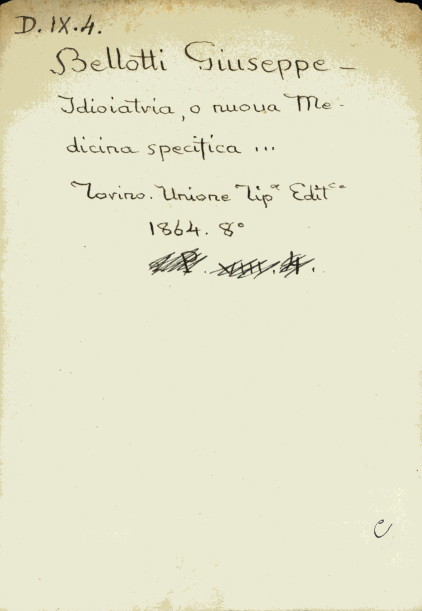 D. IX. 4.
Bellotti Giuseppe -
Idioiatria, o nuova Me-
dicina specifica ...
Torino. Unione Tipᵃ Editᶜᵉ
1864. 8°
C